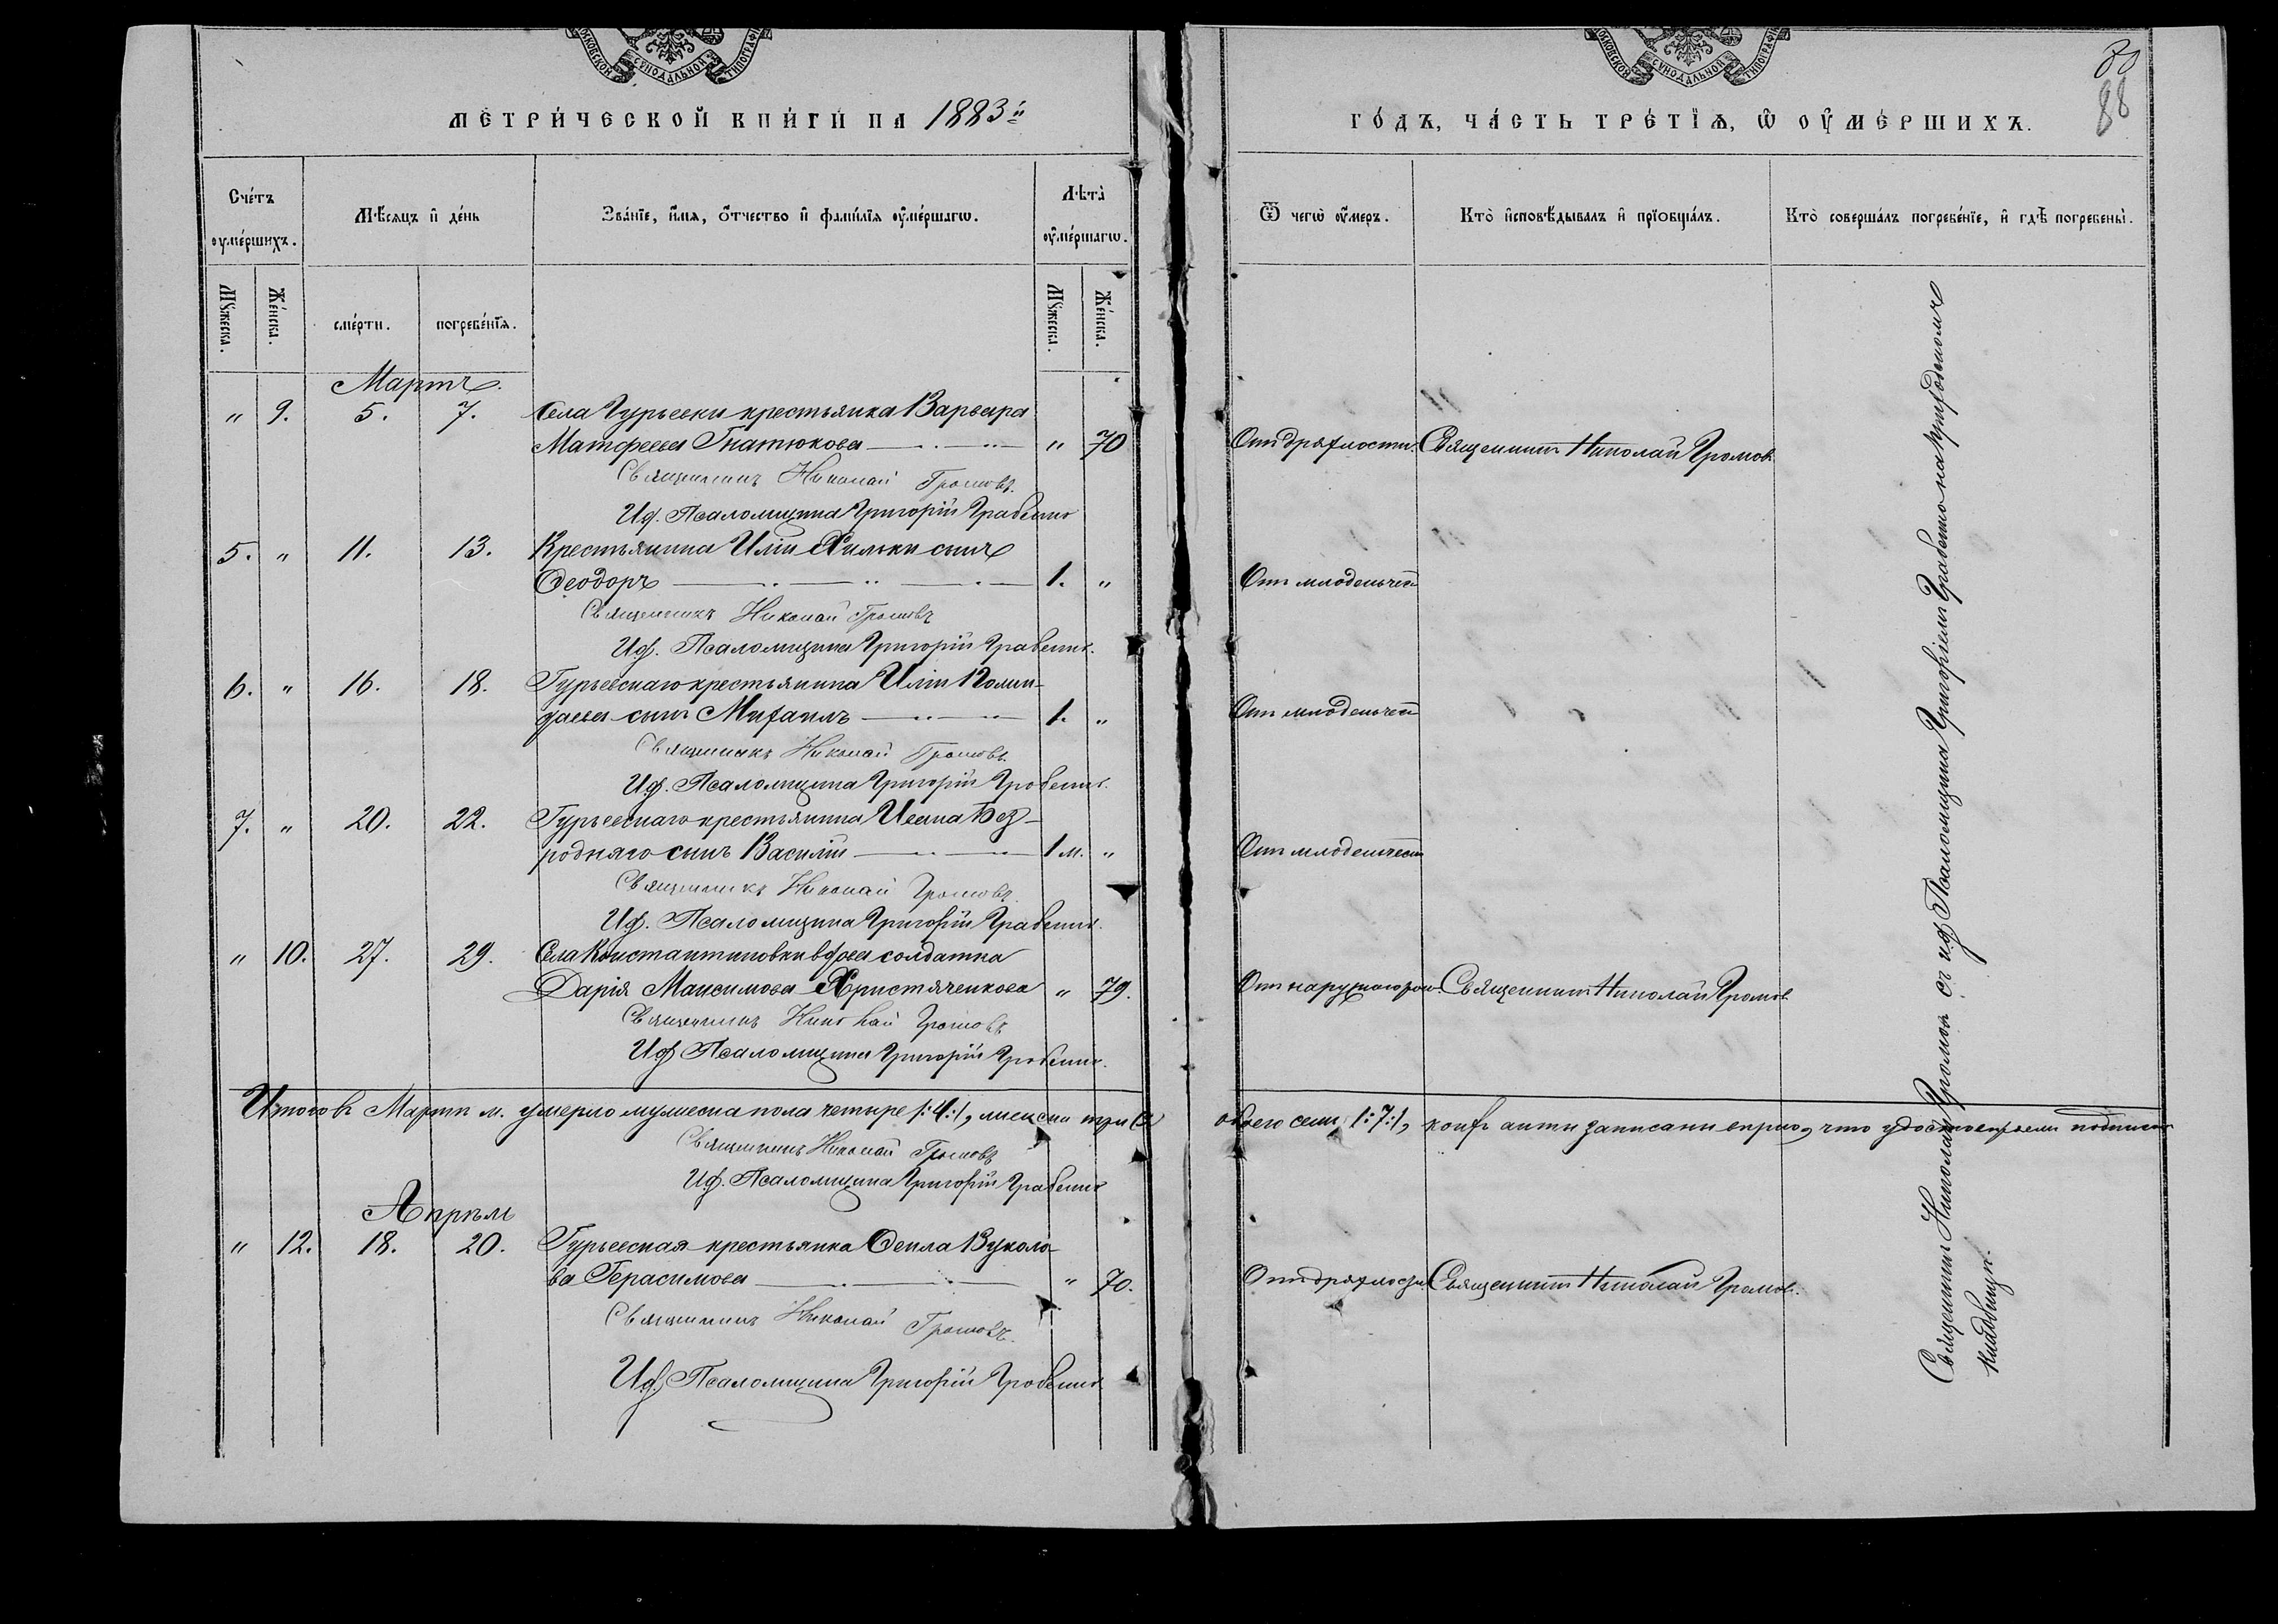 МОСКОВСКОЙ СѴНОДАЛЬНОЙ ТИПОГРАФІ
МЕТРИЧЕСКОЙ КНИГИ НА 1883й
Счетъ оумершихъ.
Мѣсяцъ и день
Званіе, имя, отчество и фамилія оумершагѡ.
Лѣта оумершагѡ.
Мꙋжеска.
Женска.
смерти.
погребенія.
Мꙋжеска.
Женска.
Мартъ
" 9. 5. 7. Села Гурьевки крестьянка Варвара
Матфеева Гнатюкова " 70
Священникъ Николай Громовъ.
И.д. Псаломщика Григорій Гравенко
5. " 11. 13. Крестьянина Иліи Хильки сынъ
Ѳеодоръ 1. "
Священникъ Николай Громовъ
И.д. Псаломщика Григорій Гравенко.
6. " 16. 18. Гурьевскаго крестьянина Иліи
сынъ Михаилъ 1. "
Священникъ Николай Громовъ.
И.д. Псаломщика Григорій Гравенко.
7. " 20. 22. Гурьевскаго крестьянина Ивана Без-
родняго сынъ Василій 1 м. "
Священникъ Николай Громовъ.
И.д. Псаломщика Григорій Гравенко.
" 10. 27. 29. Села Константиновки вдова солдатка
Дарія Максимова Христяченкова " 79.
Священникъ Николай Громовъ
И.д. Псаломщика Григорій Гравенко.
Итого въ Мартѣ м. умерло мужеска пола четыре /:4:/, женска три
Священникъ Николай Громовъ
И.д. Псаломщика Григорій Гравенко
Апрѣль
" 12. 18. 20. Гурьевская крестьянка Ѳекла Вуколо-
ва Герасимова " 70.
Священникъ Николай Громовъ.
И.д. Псаломщика Григорій Гравенко
МОСКОВСКОЙ СѴНОДАЛЬНОЙ ТИПОГРАФІ
80
88
ГОДЪ, ЧАСТЬ ТРЕТІѦ, Ѡ ОУМЕРШИХЪ.
Ѿ чегѡ оумеръ.
Кто исповѣдывалъ и пріобщалъ.
Кто совершалъ погребеніе, и гдѣ погребены.
Отъ дряхлости. Священникъ Николай Громовъ.
Отъ младенческ
Отъ младенческ
Отъ младенческ
Отъ Священникъ Николай Громовъ
обоего семь /:7:/, акты записаны вѣрно, что удостовѣряемъ подписью
Отъ дряхлости. Священникъ Николай Громовъ.
Священникъ Николай Громовъ съ и.д. Псаломщика Григоріемъ Гравенко на приходскомъ
кладбищѣ.